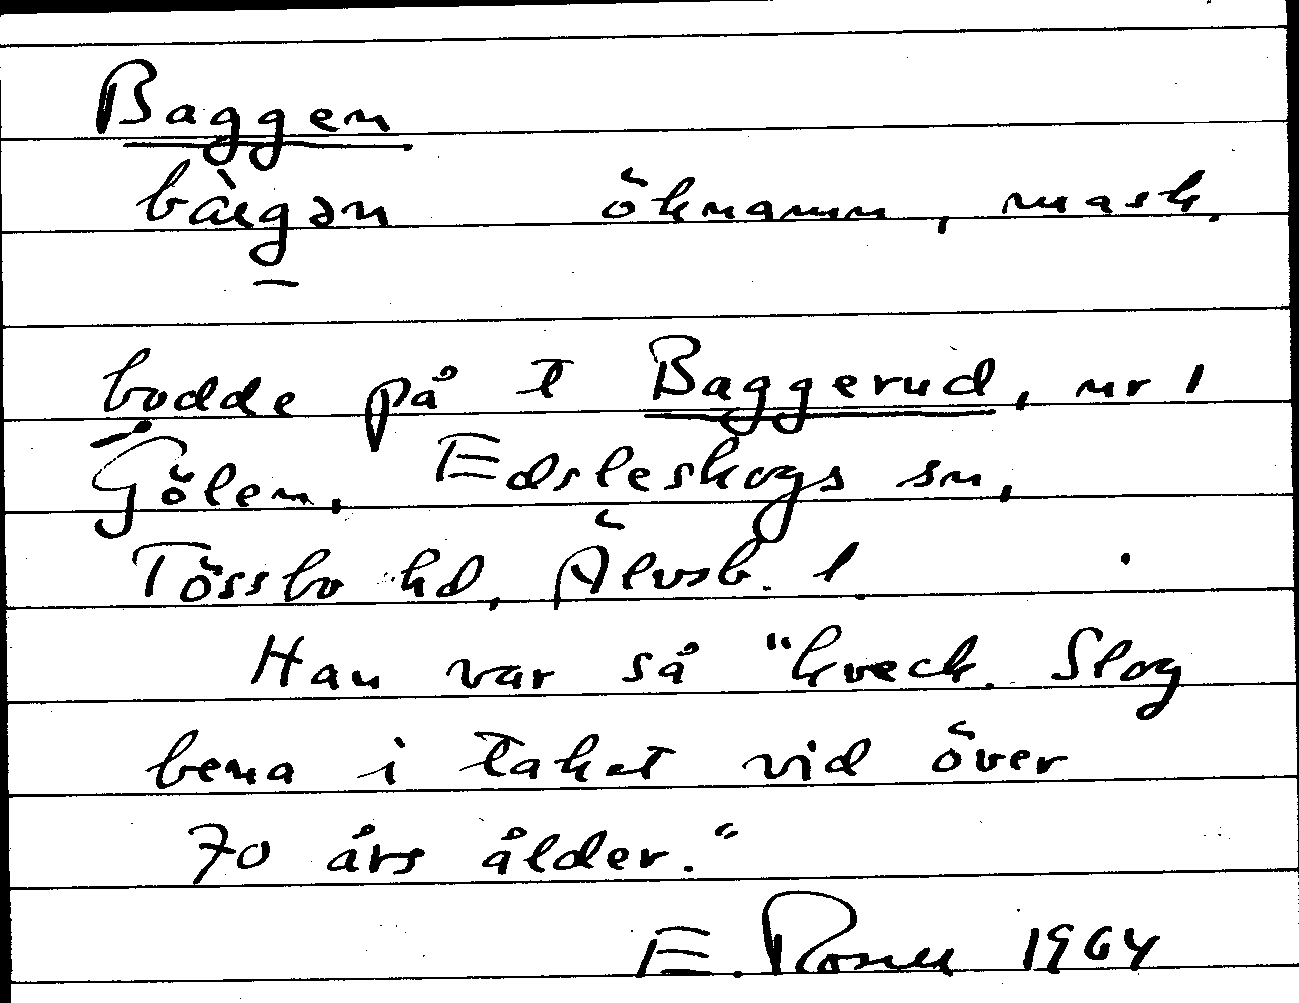 Baggen
bàgən öknamn, mask.
bodde på t Baggerud, nr 1
Gölen, Edsleskogs sn,
Tössbo hd, Älvsb. l.
Han var så "kveck. Slog
bena i taket vid över
70 års ålder."
E. Rosell 1964